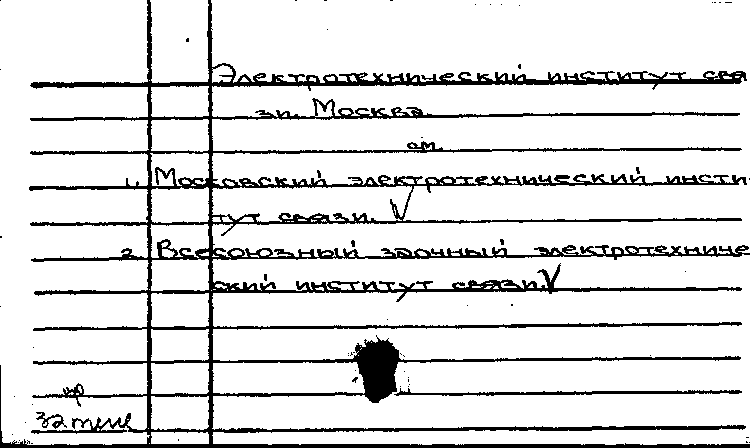 Электротехнический институт свя
зи. Москва.
см.
1. Московский электротехнический инсти-
тут связи. V
2. Всесоюзный заочный электротехниче
ский институт связи. V